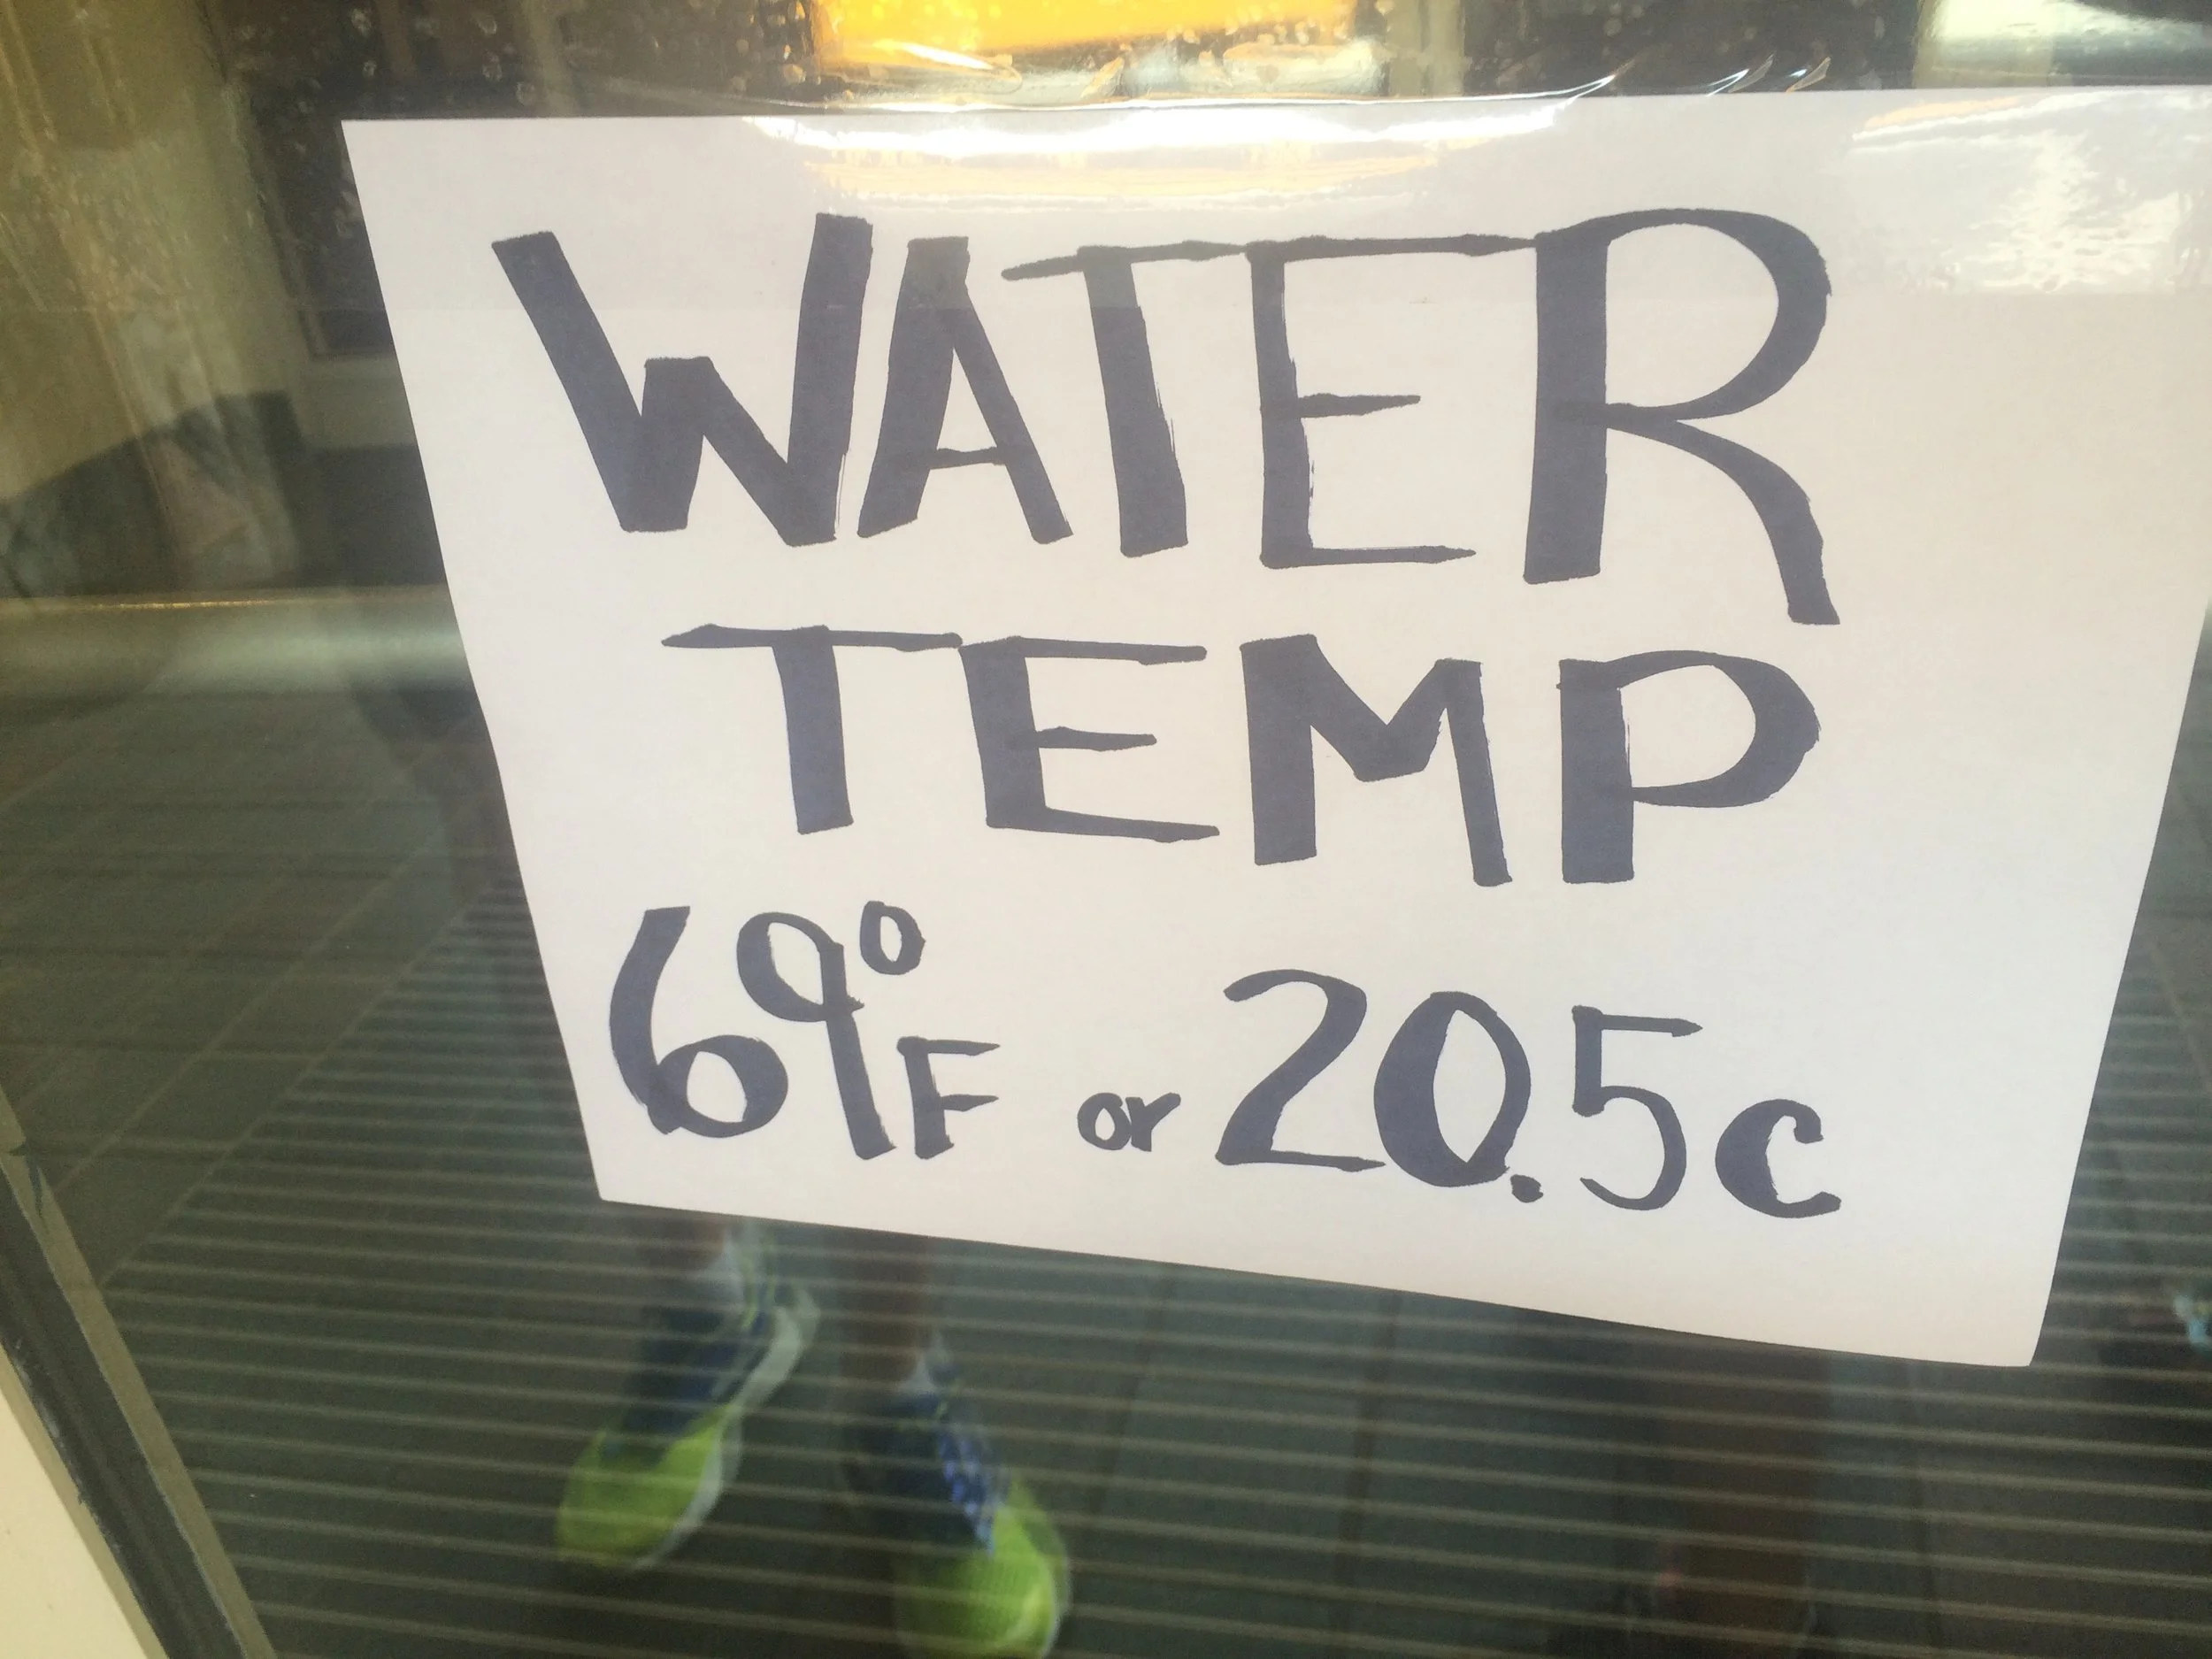 WATER
TEMP
69°F or 20.5c